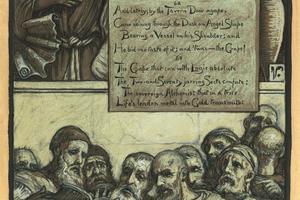 And lately, by the Tavern Door agape,
Came shining through the Dusk an Angel Shape
Bearing a Vessel on his Shoulder; and
He bid me taste of it; and 'twas—the Grape!
The Grape that can with Logic absolute
The Two-and-Seventy jarring Sects confute:
The sovereign Alchemist that in a trice
Life's leaden metal into Gold transmute: